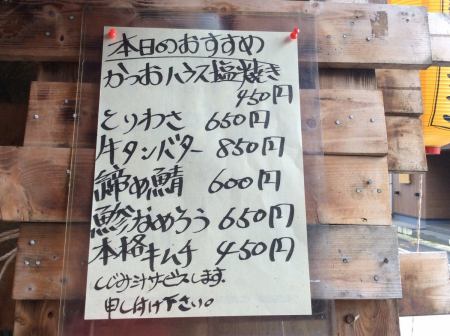 本日のおすすめ
かつおハラス塩焼き
450円
とりわさ 650円
牛タンバター 850円
締め鯖 600円
鯵なめろう 650円
本格キムチ 450円
しじみ汁サービスします。
申し付け下さい。